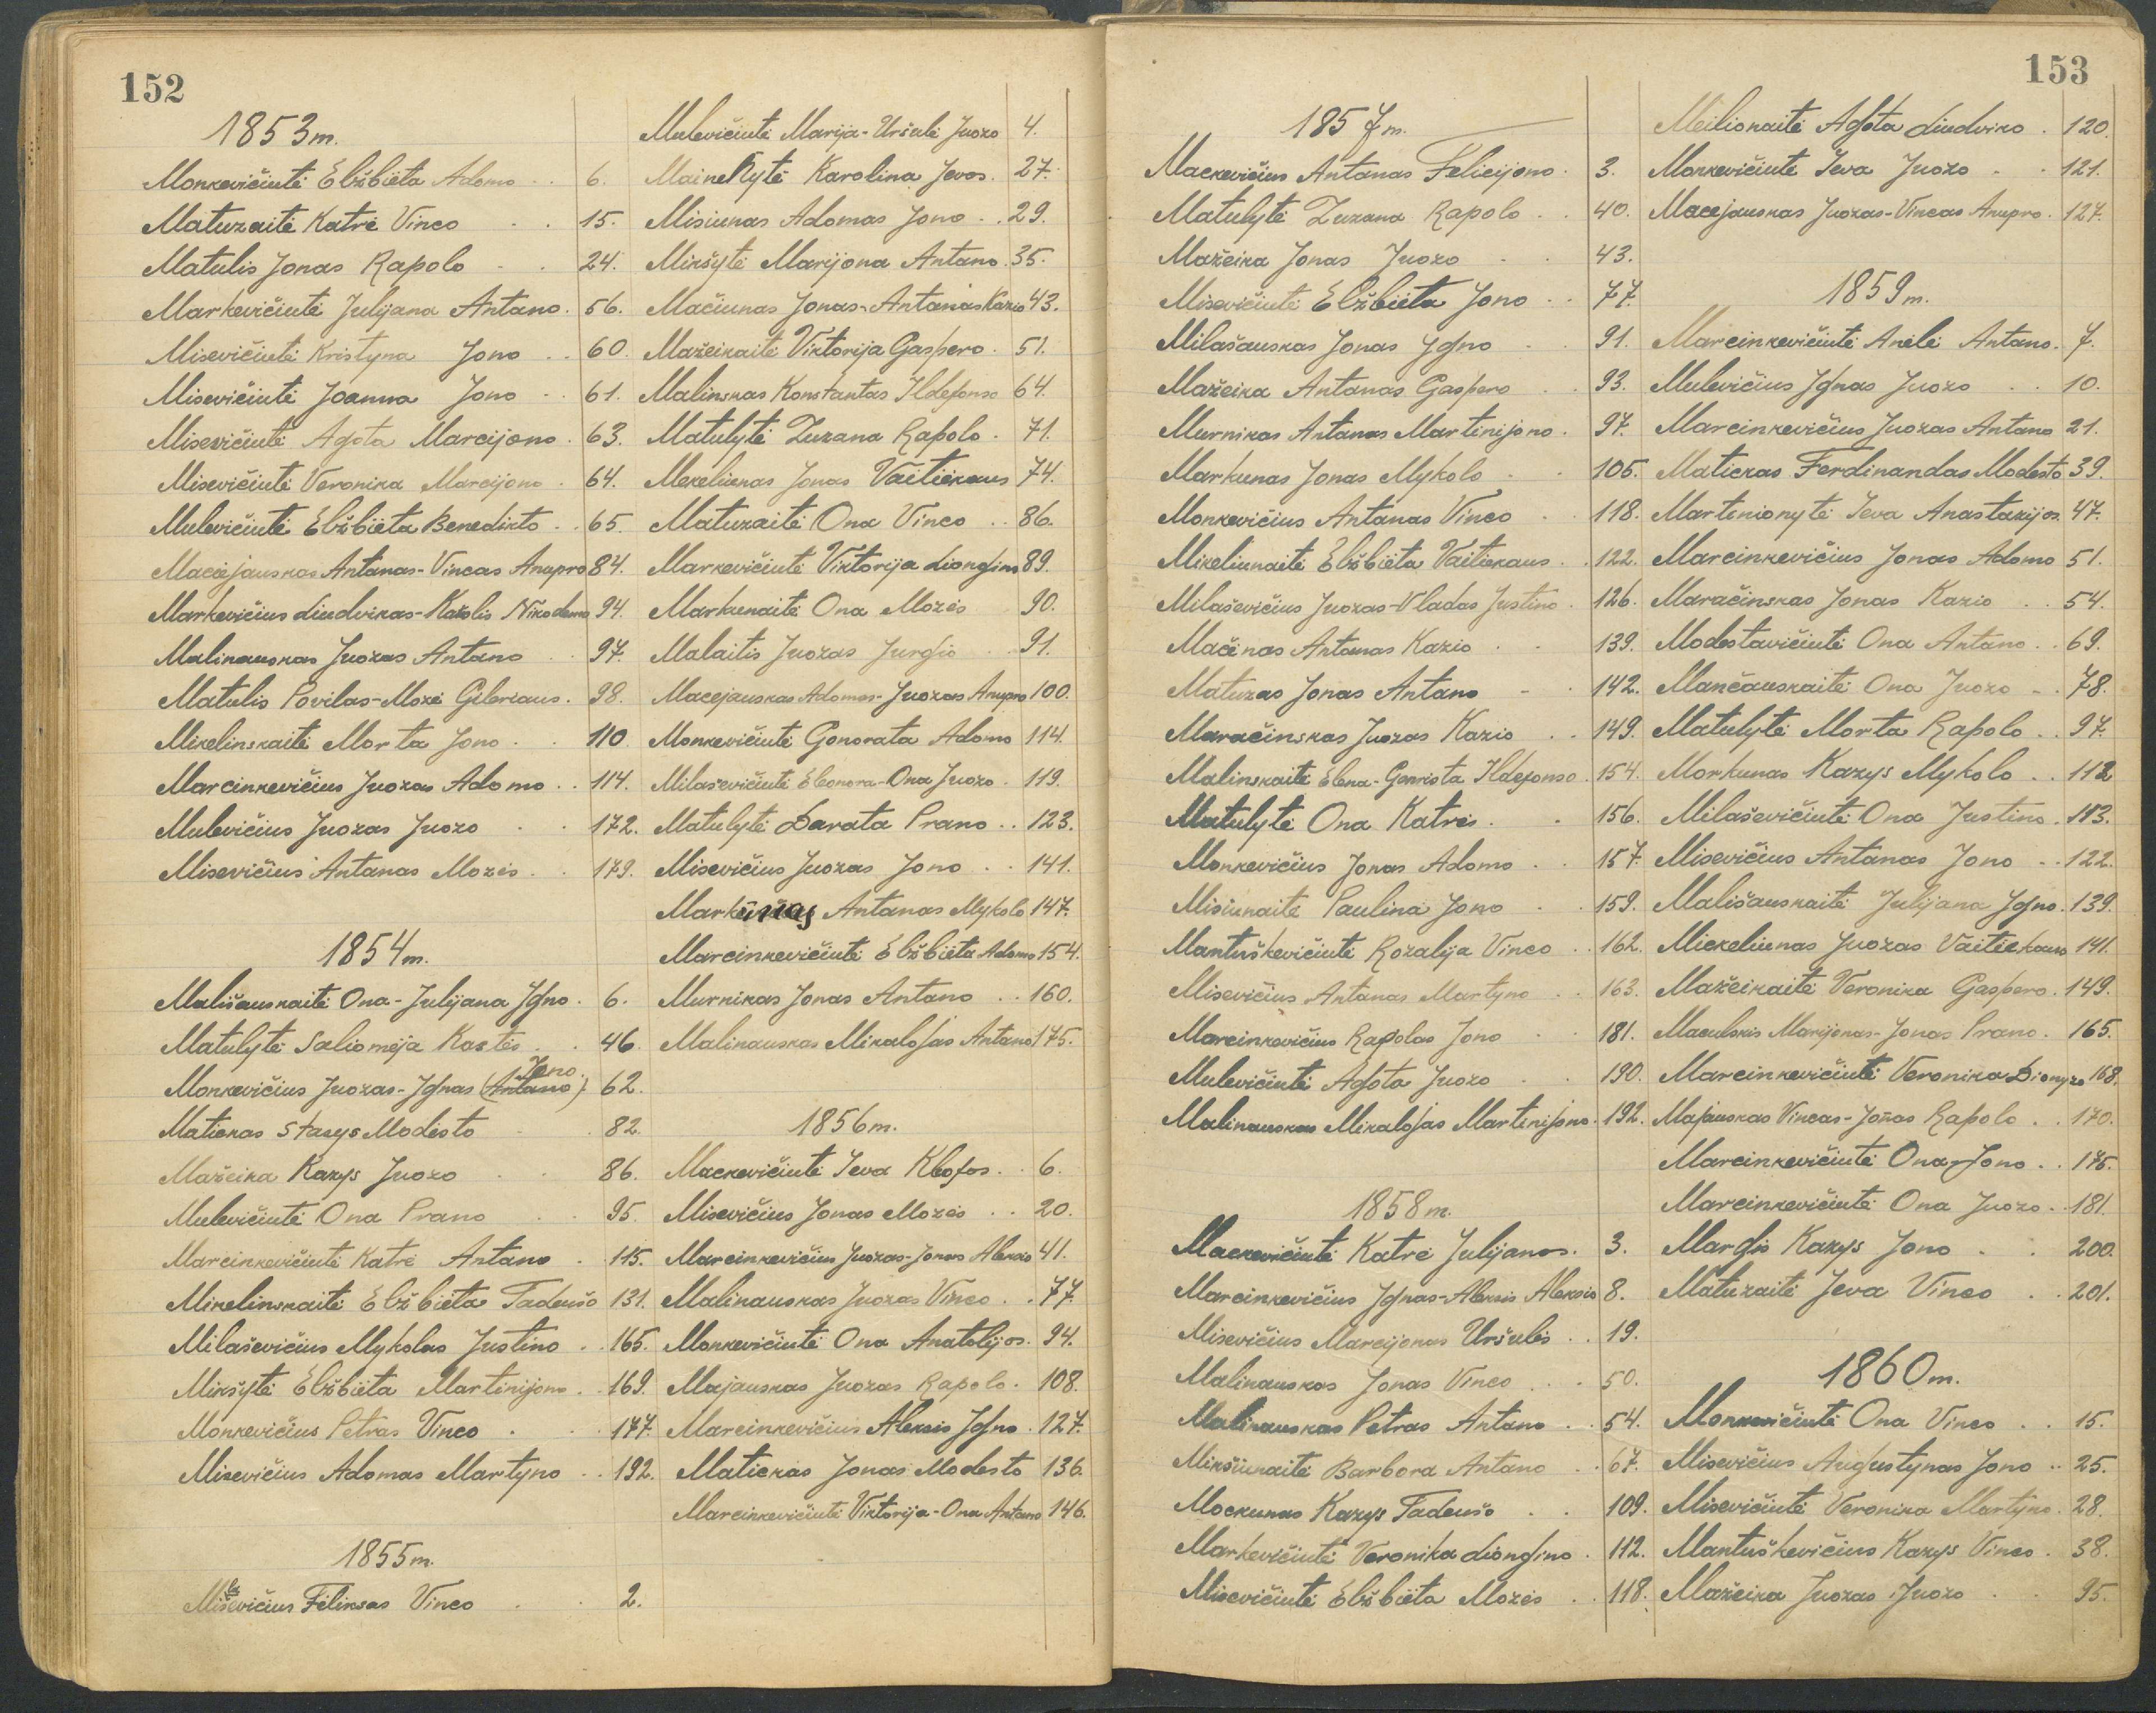 152
1853 m.
Monkevičiutė Elžbieta Adomo . . 6.
Matuzaitė Katrė Vinco . . 15.
Matulis Jonas Rapolo . . 24.
Markevičiutė Julijana Antano. 56.
Misevičiutė Kristyna Jono . . 60.
Misevičiutė Joanna Jono . . 61.
Misevičiutė Agota Marcijono . 63.
Misevičiutė Veronika Marcijono . 64.
Mulevičiutė Elžbieta Benedikto . . 65.
Maciejauskas Antanas-Vincas Anupro 84.
Markevičius Liudvikas-Karolis Nikodemo 94.
Malinauskas Juozas Antano . . 97.
Matulis Povilas-Mozė Giberiaus . 98.
Mikelinskaitė Morta Jono . . 110
Marcinkevičius Juozas Adomo . . 114.
Mulevičius Juozas Juozo . . 172.
Misevičius Antanas Mozės . . 179.
1854 m.
Mališauskaitė Ona-Julijana Igno . 6.
Matulytė Saliomėja Kastės . . 46.
Jono.
Monkevičius Juozas-Ignas (Antano) 62.
Matickas Stasys Modesto . . 82.
Mažeika Kazys Juozo . . 86.
Mulevičiutė Ona Prano . . 95.
Marcinkevičiutė Katrė Antano . 115.
Mikelinskaitė Elžbieta Tadeušo 131.
Milaševičius Mykolas Justino . . 165.
Mikšytė Elžbieta Martinijono . . 169.
Monkevičius Petras Vinco . . 177.
Misevičius Adomas Martyno . . 192.
1855 m.
Misevičius Feliksas Vinco . . 2.
Mulevičiutė Marija-Uršulė Juozo 4.
Mainelytė Karolina Jevos. 27.
Misiunas Adomas Jono . . 29.
Mikšytė Marijona Antano. 35.
Mačiunas Jonas-Antanas Kazio 43.
Mažeikaitė Viktorija Gaspero . 51.
Malinskas Konstantas Ildefonso 64.
Matulytė Zuzana Rapolo . 71.
Mekeliunas Jonas Vaitiekaus 74.
Matuzaitė Ona Vinco . . 86.
Markevičiutė Viktorija Liongino 89.
Markunaitė Ona Mozės 90.
Malaitis Juozas Jurgio . . 91.
Macejauskas Adomas-Juozas Anupro 100.
Monkevičiutė Gonorata Adomo 114.
Milaševičiutė Eleonora-Ona Juozo . 119.
Matulytė Darata Prano . . 123.
Misevičius Juozas Jono . . 141.
Markūnas Antanas Mykolo 147.
Marcinkevičiutė Elžbieta Adomo 154.
Murnikas Jonas Antano . . 160.
Malinauskas Mikalojas Antano 175.
1856 m.
Mackevičiutė Ieva Kleofos . . 6.
Misevičius Jonas Mozės . . 20.
Marcinkevičius Juozas-Jonas Aleksio 41.
Malinauskas Juozas Vinco . . 77.
Monkevičiutė Ona Anatolijos. 94.
Majauskas Juozas Rapolo . 108.
Marcinkevičius Aleksis Igno . 127.
Matickas Jonas Modesto 136.
Marcinkevičiutė Viktorija-Ona Antano 146.
153
1857 m.
Mackevičius Antanas Felicijono . 3.
Matulytė Zuzana Rapolo . . 40.
Mažeika Jonas Juozo . . 43.
Misevičiutė Elžbieta Jono . . 77.
Milašauskas Jonas Igno . . 91.
Mažeika Antanas Gaspero . . 93.
Murnikas Antanas Martinijono . 97.
Markunas Jonas Mykolo . . 105.
Monkevičius Antanas Vinco . . 118.
Mikeliunaitė Elžbieta Vaitiekaus . . 122.
Milaševičius Juozas-Vladas Justino . 126.
Mačėnas Antanas Kazio . . 139.
Matuzas Jonas Antano . . 142.
Maračinskas Juozas Kazio . . 149.
Malinskaitė Elena-Genrista Ildefonso . 154.
Matulytė Ona Katrės . . 156.
Monkevičius Jonas Adomo . . 157.
Misiunaitė Paulina Jono . . 159.
Mantuškevičiutė Rozalija Vinco . . 162.
Misevičius Antanas Martyno . . 163.
Marcinkevičius Rapolas Jono . . 181.
Mulevičiutė Agota Juozo . . 190.
Malinauskas Mikalojas Martinijono . 192.
1858 m.
Mackevičiutė Katrė Julijanos. 3.
Marcinkevičius Ignas-Aleksis Aleksio 8.
Misevičius Marcijonas Uršulės . . 19.
Malinauskas Jonas Vinco . . . 50.
Malinauskas Petras Antano . . 54.
Mikšiunaitė Barbora Antano . . 67.
Mockunas Kazys Tadeušo . . 109.
Markevičiutė Veronika Liongino . 112.
Misevičiutė Elžbieta Mozės . . 118.
Meilionaitė Agota Liudviko . 120.
Monkevičiutė Ieva Juozo . . 121.
Macejauskas Juozas-Vincas Anupro. 127.
1859 m.
Marcinkevičiutė Anelė Antano. 7.
Mulevičius Ignas Juozo . . 10.
Marcinkevičius Juozas Antano 21.
Matickas Ferdinandas Modesto 39.
Martinionytė Ieva Anastazijos. 47.
Marcinkevičius Jonas Adomo 51.
Maračinskas Jonas Kazio . . 54.
Modestavičiutė Ona Antano . . 69.
Mančauskaitė Ona Juozo . . 78.
Matulytė Morta Rapolo . . 97.
Morkunas Kazys Mykolo . . 112
Milaševičiutė Ona Justino . 113.
Misevičius Antanas Jono . . 122.
Mališauskaitė Julijana Igno. 139.
Mickeliunas Juozas Vaitiekaus 141.
Mažeikaitė Veronika Gaspero. 149.
Maculskis Marijonas-Jonas Prano. 165.
Marcinkevičiutė Veronika Dionyzo 168.
Majauskas Vincas-Jonas Rapolo . . 170.
Marcinkevičiutė Ona Jono . . 175.
Marcinkevičiutė Ona Juozo . . 181.
Margis Kazys Jono . . 200.
Matuzaitė Jeva Vinco . . 201.
1860 m.
Monkevičiutė Ona Vinco . . 15.
Misevičius Augustynas Jono . . 25.
Misevičiutė Veronika Martyno . 28.
Mantuškevičius Kazys Vinco . 38.
Mažeika Juozas Juozo . . 95.